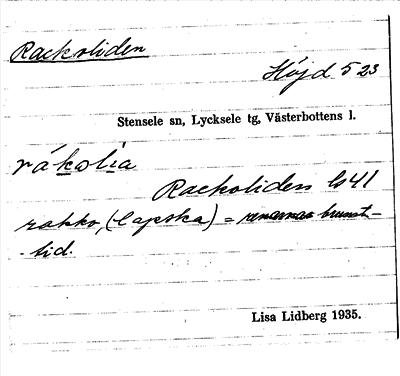 Rackoliden
Höjd 523
Stensele sn, Lycksele tg, Västerbottens l.
råkolia
Rackoliden
rakko, (lapska) = renarnas brunst-
-tid.
Lisa Lidberg 1935.